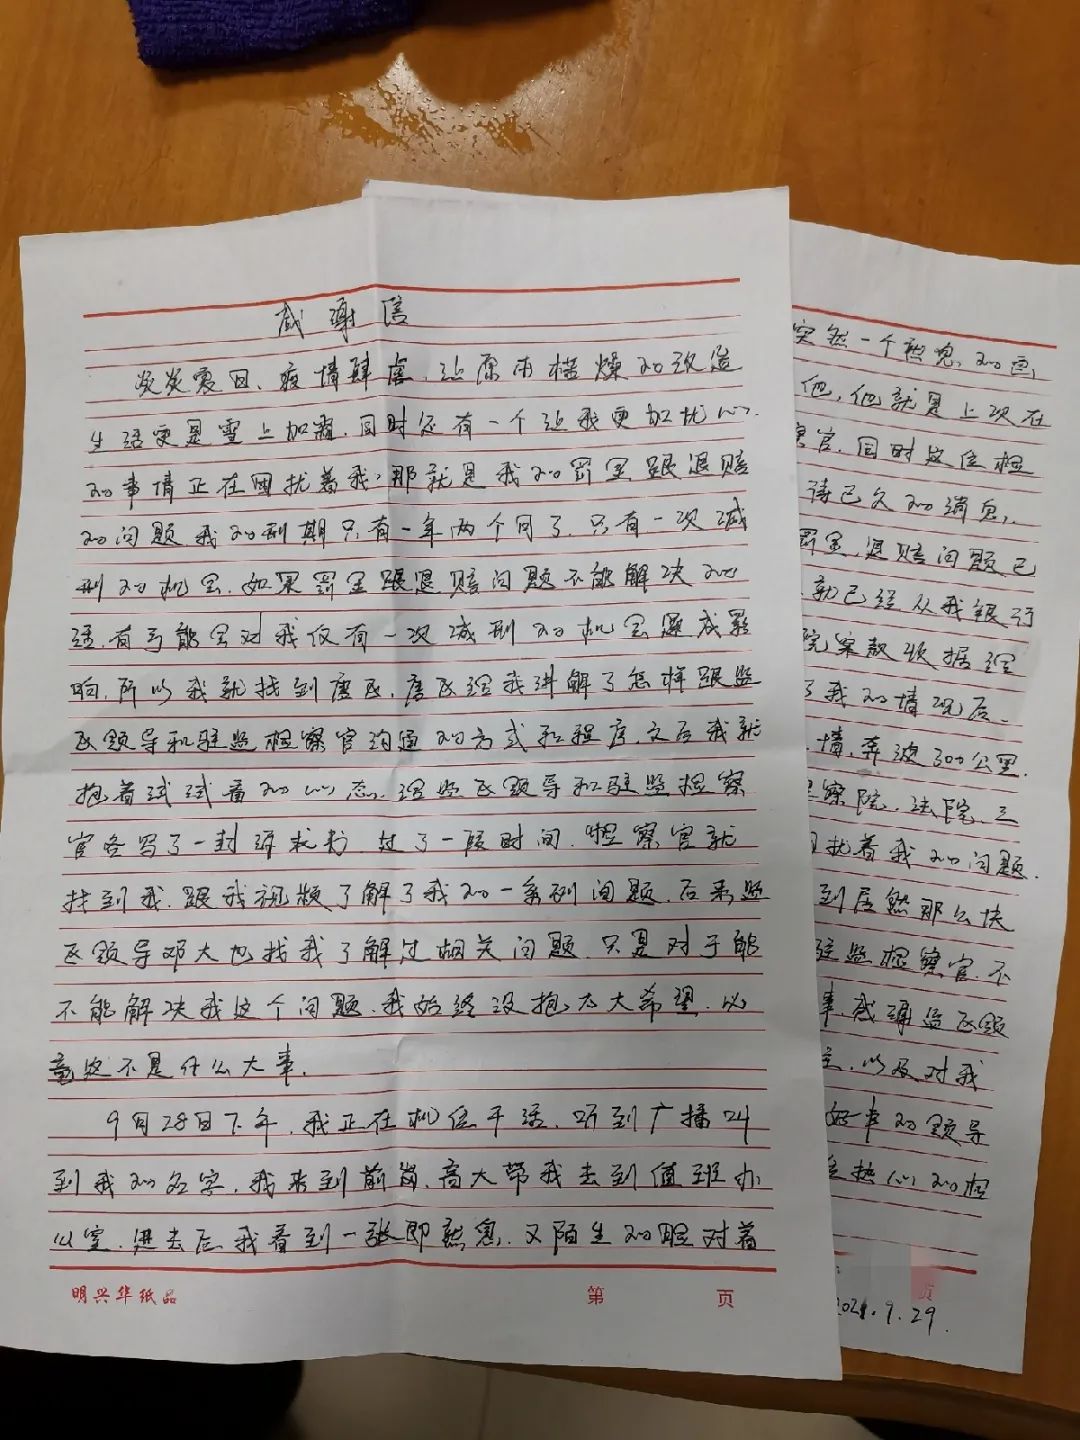 感谢信
炎炎夏日、疫情肆虐,让原本枯燥的改造
生活更是雪上加霜,同时还有一个让我更加忧心
的事情正在困扰着我,那就是我的罚金跟退赔
的问题,我的刑期只有一年两个月了,只有一次减
刑的机会,如果罚金跟退赔问题不能解决的
话,有可能会对我仅有一次减刑的机会造成影
响,所以我就找到唐区,唐区给我讲解了怎样跟监
区领导和驻监检察官沟通的方式和程序,之后我就
抱着试试看的心态,给监区领导和驻监检察
官各写了一封请求书,过了一段时间,检察官就
找到我,跟我视频了解了我的一系列问题,后来监
区领导邓大也找我了解过相关问题,只是对于能
不能解决我这个问题,我始终没抱太大希望,必
竟这不是什么大事.
9月28日下午,我正在机位干活,听到广播叫
到我的名字,我来到前岗,高大带我去到值班办
公室,进去后我看到一张即熟悉,又陌生的脸对着
明兴华纸品 第 页
突然一个熟悉的画
他,他就是上次在
察官,同时这位检
待已久的消息,
罚金,退赔问题已
就已经从我银行
院案款收据给
了我的情况后、
情,奔波300公里.
检察院、法院、三
困扰着我的问题.
到居然那么快
驻监检察官,不
事,感谢监区领
以及对我
好事的领导
热心的检
页
2021.9.29.